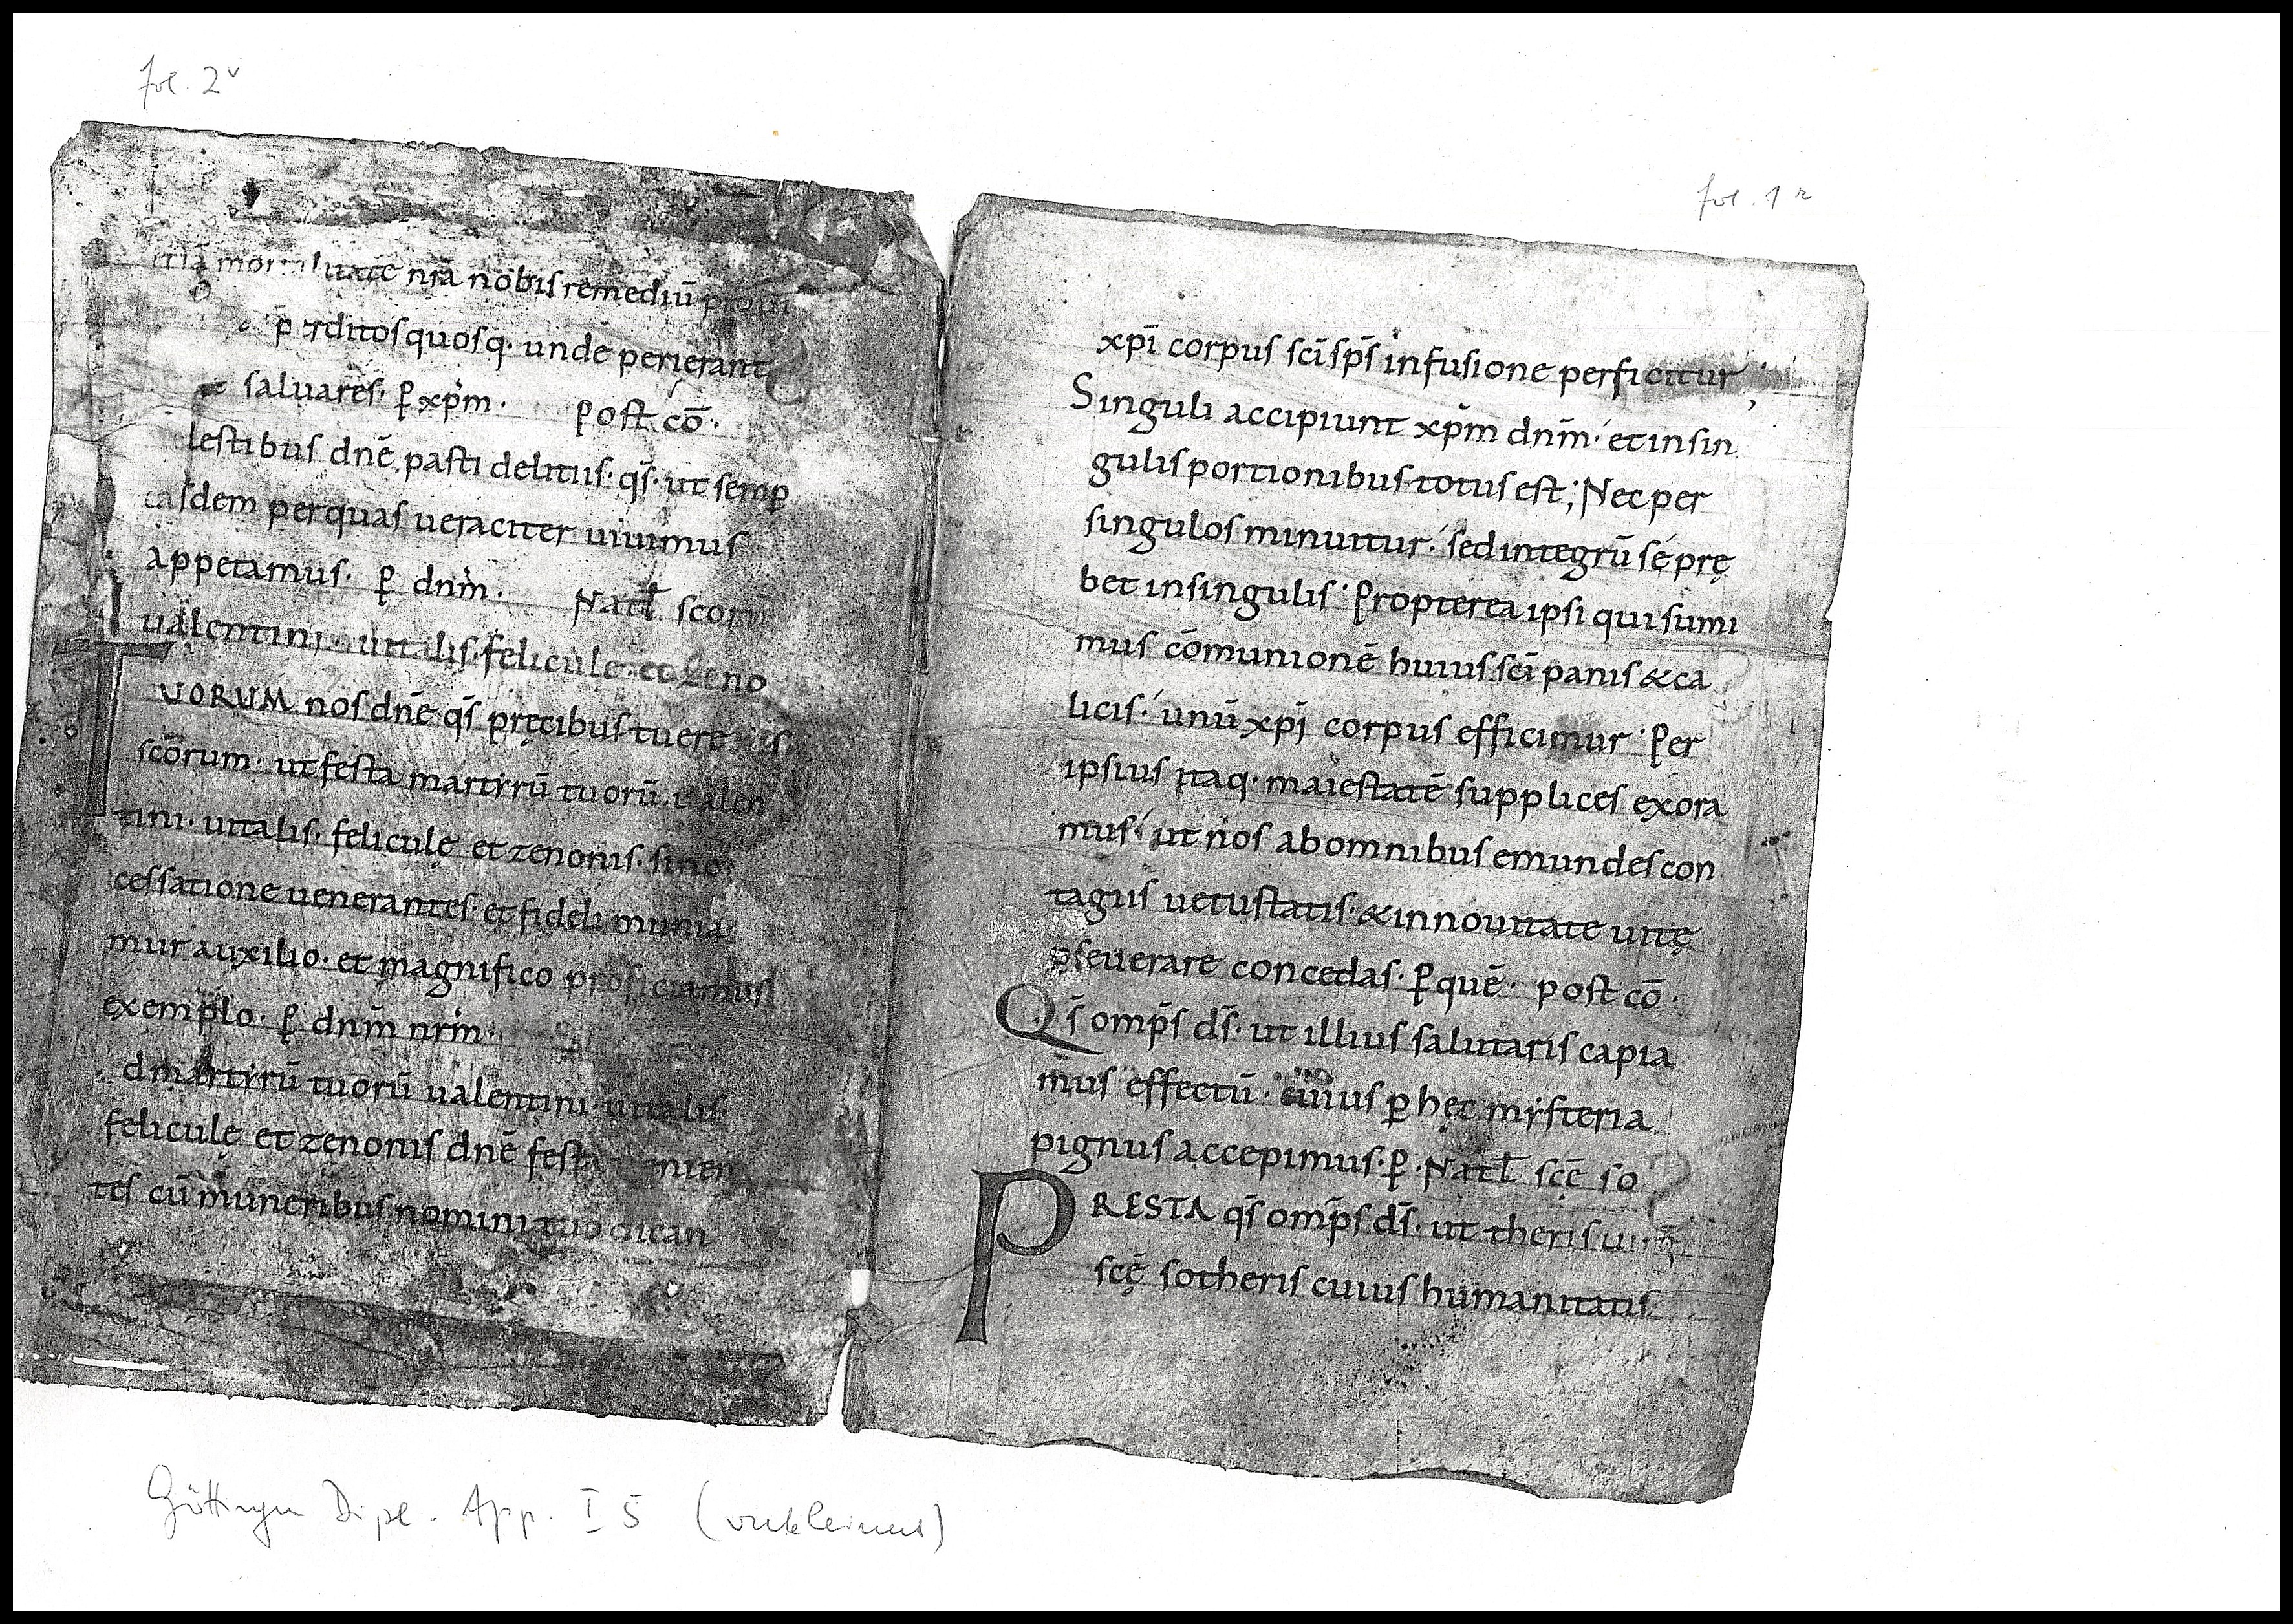 fol. 2v
mortalitate nr̄a nobis remediū
perditos quosq· unde perierant
et saluares· ꝑ xp̄m· Post cō·
lestibus dnē pasti delitiis· qs̄· ut semꝑ
easdem per quas ueraciter uiuimus
appetamus· ꝑ dnm̄· Natł scorū
ualentini· uitalis· felicule· et zeno
TUORUM nos dnē qs̄ pręcibus tuere
scōrum· ut festa martirū tuorū ualen
tini· uitalis· felicule et zenonis· sine
cessatione uenerantes· et fideli munia
mur auxilio· et magnifico proficiamus
exemplo· ꝑ dnm̄ nrm̄·
d martirū tuorū ualentini· uitalis
felicule et zenonis dnē festa
tes cū muneribus nomini tuo dican
fol. 1r
xpī corpus scī sps̄ infusione perficitur;
Singuli accipiunt xp̄m dnm̄· et in sin
gulis portionibus totus est; Nec per
singulos minuitur· sed integrū se prę
bet in singulis· Propterea ipsi qui sumi
mus cōmunionē huius scī panis & ca
licis· unū xpī corpus efficimur· Per
ipsius itaq· maiestatē supplices exora
mus· ut nos ab omnibus emundes con
tagiis uetustatis· & in nouitate uitę
ꝑseuerare concedas· ꝑ quē· post cō·
Qs̄ omp̄s ds̄· ut illius salutaris capia
mus effectū· cuius ꝑ hęc mysteria
pignus accepimus· ꝑ· Natł scē so
PRESTA qs̄ omp̄s ds̄· ut theris uirḡ
scę sotheris cuius humanitatis
Göttingen Dipl. App. I 5 (verkleinert)